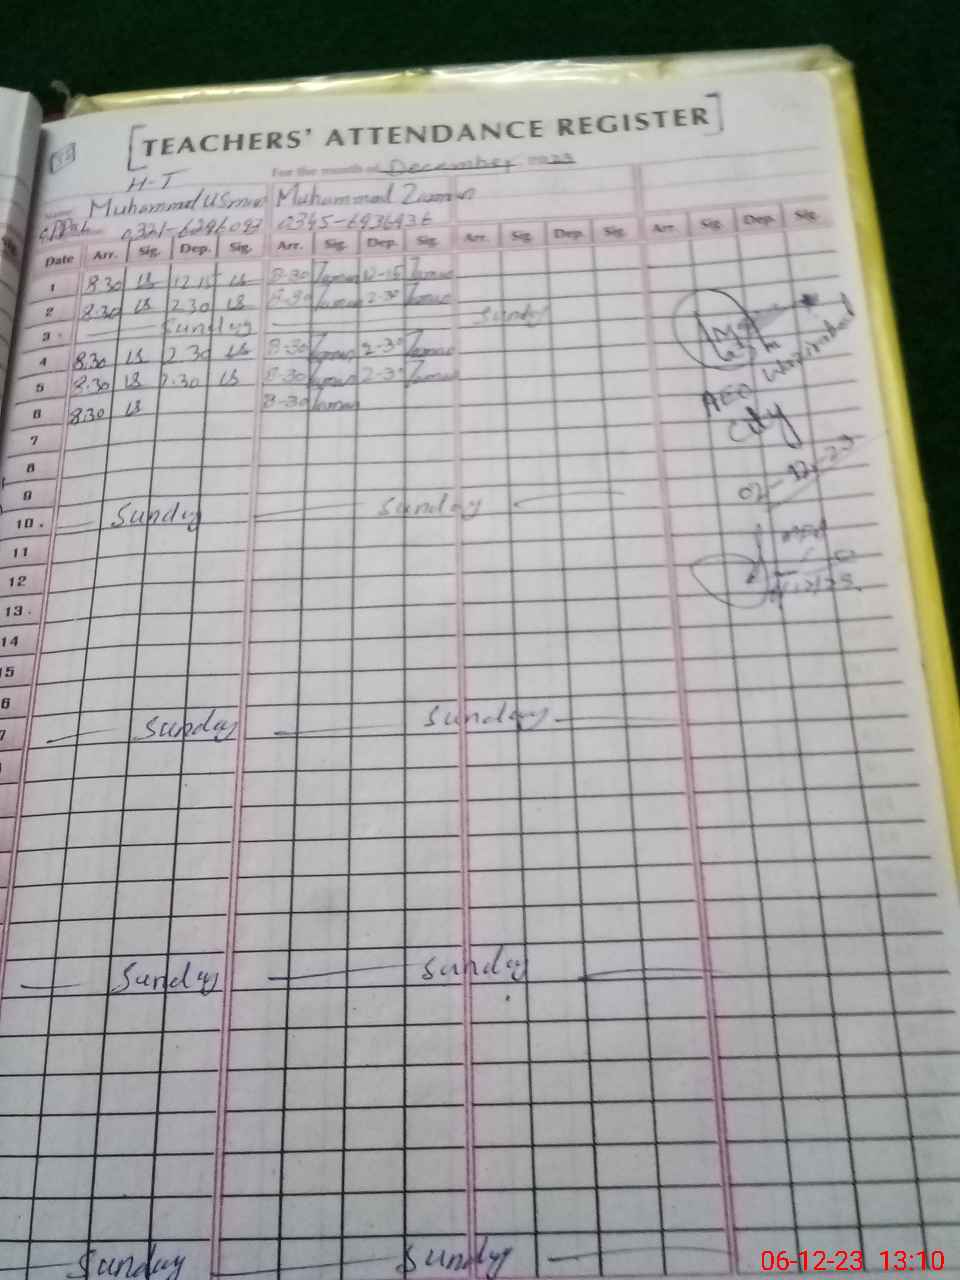 [TEACHERS' ATTENDANCE REGISTER]
For the month of December 2023
H-T
Name Muhammad Usman Muhammad Zaman
0321-6296093 0345-6936436
Date Arr. Sig. Dep. Sig. Arr. Sig. Dep. Sig. Arr. Sig. Dep. Sig. Arr. Sig. Dep. Sig.
1 8.30 us 12.15 us 8-30 Zaman 12-15 Zaman
2 8.30 us 2.30 us 8-30 Zaman 2-30 Zaman
3. Sunday Sunday
4 8.30 us 2.30 us 8-30 Zaman 2-30 Zaman
5 8.30 us 2.30 us 8-30 Zaman 2-30 Zaman
6 8.30 us 8-30 Zaman
7
8
9
10. Sunday Sunday
11
12
13.
14
15
6
7 Sunday Sunday
Sunday Sunday
Sunday Sunday
AEO Wazirabad
City
02-12-23
06-12-23 13:10